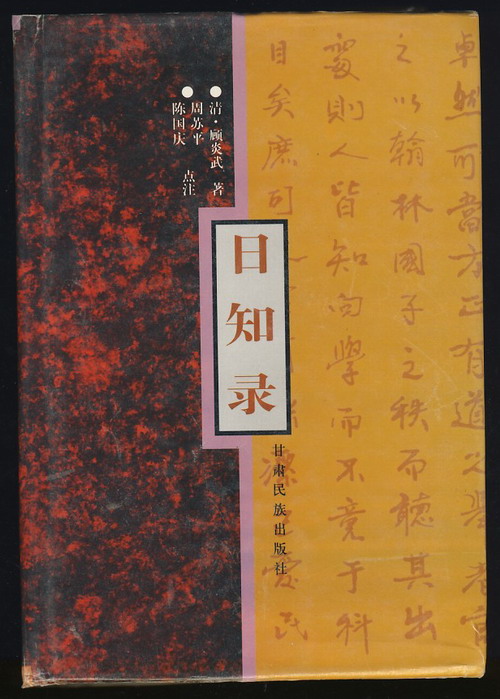 卓然可當方正有道之舉者官
之以翰林國子之秩而聽其出
處則人皆知向學而不竞于科
目矣庶可
愛民
清·顾炎武 著
周苏平
陈国庆
点注
日知录
甘肃民族出版社